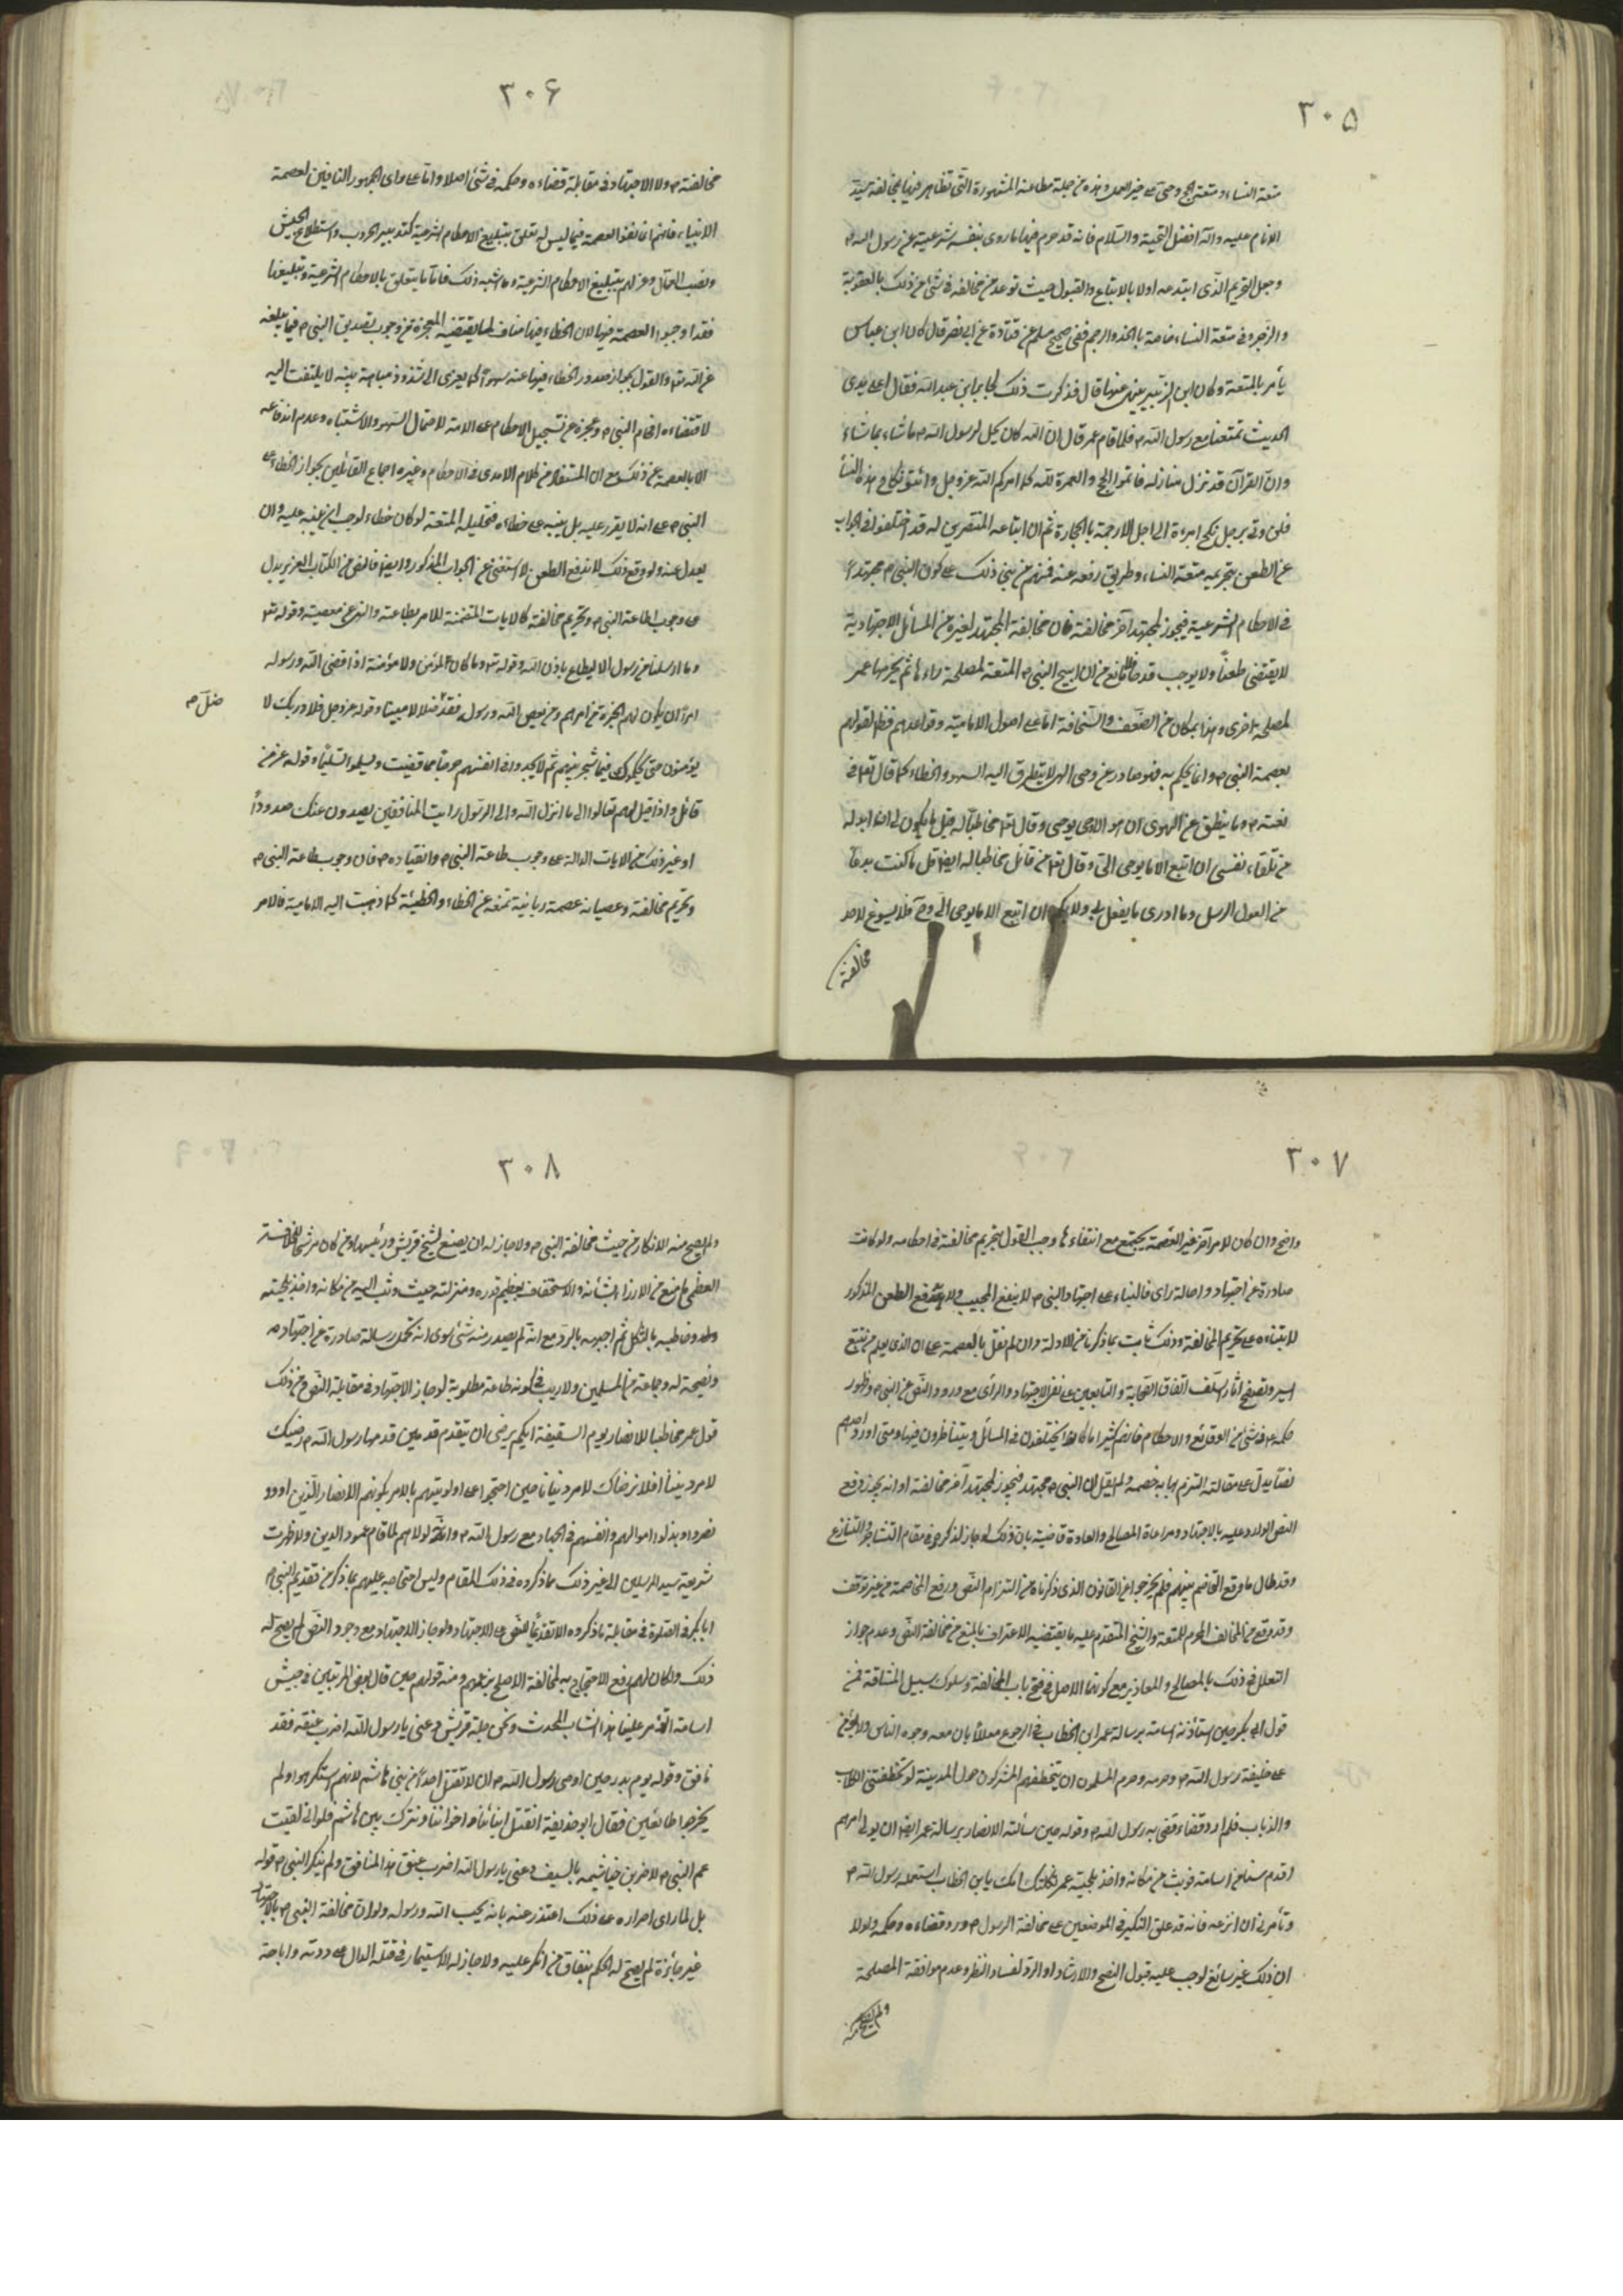 ٣٠٥
متعة النساء ومتعة الحج وحي على خير العمل وهذه من جملة مطاعنه المشهورة التي تظاهر فيها بمخالفة سيد
الانام عليه وآله افضل التحية والسلام فانه قد حرم فيها ما روى بنفسه شرعيته عن رسول الله ص
وجعل التحريم الذي ابتدعه اولا بالاتباع والقبول حيث توعد من خالفه في شئ من ذلك بالعقوبة
والزجر وفى متعة النساء خاصة بالحد والرجم ففى صحيح مسلم عن قتادة عن ابى نضر قال كان ابن عباس
يأمر بالمتعة وكان ابن الزبير ينهى عنها قال فذكرت ذلك لجابر ابن عبد الله فقال على يدى
الحديث تمتعنا مع رسول الله ص فلما قام عمر قال ان الله كان يحل لرسول الله ص ما شاء بما شاء
وان القرآن قد نزل منازله فاتموا الحج والعمرة لله كما امركم الله عز وجل وابتوا نكاح هذه النسأ
فلن اوتى برجل نكح امرءة الى اجل الا رجمته بالحجارة ثم ان اتباعه المنتصرين له قد اختلفوا فى الجواب
عن الطعن بتحريمه متعة النساء وطريق رفعه عنه فمنهم من بنى ذلك على كون النبى ص مجتهدا
فى الاحكام الشرعية فيجوز لمجتهد آخر مخالفته فان مخالفة المجتهد لغيره من المسائل الاجتهادية
لا يقتضى طعنا ولا يوجب قدحا فلا مانع من ان ابيح النبى ص المتعة لمصلحة راءها ثم يحرمها عمر
لمصلحة اخرى وهذا بمكان من الضعف والسخافة اما على اصول الامامية وقواعدهم فظ لقولهم
بعصمة النبى ص وانما يحكم به فهو صادر عن وحى الهى لا يتطرق اليه السهو والخطاء كما قال تعالى فى
نعته ص وما ينطق عن الهوى ان هو الا وحى يوحى وقال تعالى مخاطبا له قل ما يكون لى ان ابدله
من تلقاء نفسى ان اتبع الا ما يوحى الىّ وقال تعالى من قائل مخاطبا له ايضا قل ما كنت بدعا
من الرسل وما ادرى ما يفعل بى ولا بكم ان اتبع الا ما يوحى الىّ وح فلا يسوغ لاحد
مخالفته
٣٠۶
مخالفته ص ولا الاجتهاد فى مقابلة قضاءه وحكمه فى شئ اصلا واما على راى الجمهور النافين لعصمة
الانبياء فانهم انما نفوا العصمة فيما ليس له تعلق بتبليغ الاحكام الشرعية كتدبير الحروب واستطلاع الجيش
ونصب العمال وعزلهم بتبليغ الاحكام الشرعية وما شبه ذلك فاما ما يتعلق بالاحكام الشرعية وتبليغها
فقد اوجبوا العصمة فيها لان الخطاء فيها مناف لما يقتضيه المعجزة من وجوب تصديق النبى ص فيما يبلغه
عن الله تعالى والقول بجواز صدور الخطاء فيها عنه سهوا كما يعزى الى شذوذ مباهتة بينة لا يلتفت اليه
لاقتضاءه افحام النبى ص وعجزه عن تسجيل الاحكام على الامة لاحتمال السهو والاشتباه وعدم اندفاعه
الا بالعصمة عن ذلك مع ان المستفاد من كلام الامدى فى الاحكام وغيره اجماع القائلين بجواز الخطاء على
النبى ص على انه لا يقرر عليه بل ينبه على خطاءه فتحليله المتعة لو كان خطاء لوجب ان ينبه عليه وان
يعدل عنه ولو وقع ذلك لاندفع الطعن لاستغنى عن الجواب المذكور وايضا فالنص من الكتاب العزيز يدل
على وجوب اطاعة النبى ص وتحريم مخالفته كالايات المتضمنة للامر بطاعته والنهى عن معصيته وقوله تعالى
وما ارسلنا من رسول الا ليطاع باذن الله وقوله تعالى وما كان لمؤمن ولا مؤمنة اذا قضى الله ورسوله
امرا ان يكون لهم الخيرة من امرهم ومن يعص الله ورسوله فقد ضل ضلالا مبينا وقوله عز وجل فلا وربك لا
ضل ص
يؤمنون حتى يحكموك فيما شجر بينهم ثم لا يجدوا فى انفسهم حرجا مما قضيت ويسلموا تسليما وقوله عز من
قائل واذا قيل لهم تعالوا الى ما انزل الله والى الرسول رايت المنافقين يصدون عنك صدودا
او غير ذلك من الايات الدالة على وجوب طاعة النبى ص وانقياده ص فان وجوب طاعة النبى ص
وتحريم مخالفته وعصيانه عصمة ربانية تمنعه عن الخطاء والخطيئة كما ذهبت اليه الامامية فالامر
٣٠٧
واضح وان كان لامر آخر غير العصمة يجتمع مع انتفاءها وجب القول بتحريم مخالفته فى احكامه ولو كانت
صادرة عن اجتهاد واصالة راى فالبناء على اجتهاد النبى ص لا ينفع المجيب ولا يدفع الطعن المذكور
لابتناءه على تحريم المخالفة وذلك ثابت بما ذكرنا من الادلة وان لم نقل بالعصمة على ان الذى يعلم من تتبع
السير وتصفح اثار السلف اتفاق الصحابة والتابعين على نفى الاجتهاد والرأى مع ورود النص عن النبى ص وظهور
حكمه ص فى شئ من الوقائع والاحكام فانهم كثيرا ما كانوا يختلفون فى المسائل ويتناظرون فيها ومتى اورد احدهم
نصا يدل على مقالته التزم بها به خصمه ولم يقل ان النبى ص مجتهد فيجوز لمجتهد آخر مخالفته او انه يجوز دفع
النص الوارد عليه بالاجتهاد ومراعاة المصالح والعادة قاضية بان ذلك لو جاز لذكر فى مقام التشاجر والتنازع
وقد طال ما وقع التخاصم بينهم فلم يخرجوا عن القانون الذى ذكرناه من التزام النص ورفع المخاصمة من غير توقف
وقد وقع من المخالف المحرم للمتعة والشيخ المتقدم عليه ما يقتضيه الاعتراف بالمنع من مخالفة النص وعدم جواز
التعلل فى ذلك بالمصالح والمعاذير مع كونها الاصل فى فتح باب المخالفة وسلوك سبيل المشاقة فمن
قول ابى بكر حين استأذنه اسامة برسالة عمر ابن الخطاب فى الرجوع معللا بان معه وجوه الناس
على خليفة رسول الله ص وحرمه وحرم المسلمون ان يتخطفهم المشركون حول المدينة لو تخطفتنى الكلاب
والذئاب فلم ارد قضاء قضى به رسول الله ص وقوله حين سألته الانصار برسالة عمر ايضا ان يولى امرهم
اقدم سنا من اسامة فوثب من مكانه واخذ بلحية عمر ثكلتك امك يابن الخطاب استعمله رسول الله ص
وتأمرنى ان انزعه فانه قد علق النكير فى الموضعين على مخالفة الرسول ص ورد قضاءه وحكمه ولولا
ان ذلك غير سائغ لوجب عليه قبول النصح والارشاد او الرد لفساد النظر وعدم موافقة المصلحة
ولم يصح منه
٣٠٨
ولم يصح منه الانكار من حيث مخالفة النبى ص ولا جاز له ان يصنع لشيخ قريش ورئيسها ومن كان مرشحا للخلافة
العظمى ما صنع من الازراء بشأنه والاستخفاف بعظيم قدره ومنزلته حيث وثب اليه من مكانه واخذ بلحيته
وطفق يخاطبه بالثكل ثم اجبهه بالرد مع انه لم يصدر منه شئ سوى انه تحمل رسالة صادرة عن اجتهاده
ونصيحة له وجماعة من المسلمين ولا ريب فى كونه طاعة مطلوبة لو جاز الاجتهاد فى مقابلة النص ومن ذلك
قول عمر مخاطبا للانصار يوم السقيفة ايكم يرضى ان يتقدم قدمين قدمها رسول الله ص رضيك
لامر ديننا افلا نرضاك لامر دنيانا حين احتجوا على اولويتهم بالامر بكونهم الانصار الذين اووا و
نصروا وبذلوا اموالهم وانفسهم فى الجهاد مع رسول الله ص وانه لولاهم لما قام عمود الدين ولا ظهرت
شريعة سيد المرسلين الى غير ذلك مما ذكروه فى ذلك المقام وليس احتجاجه عليهم بما ذكر من تقديم النبى ص
ابا بكر فى الصلوة فى مقابلة ما ذكروه الا تقديما للنص على الاجتهاد ولو جاز الاجتهاد مع وجود النص لم يصح له
ذلك ولكان لهم دفع الاحتجاج به لمخالفة الاصلح بزعمهم ومنه قولهم حين قال بعض المرتبين فى جيش
اسامة اتؤمر علينا هذا الشاب الحدث ونحن جلة قريش دعنى يا رسول الله اضرب عنقه فقد
نافق وقوله يوم بدر حين اوصى رسول الله ص ان لا تقتل احدا من بنى هاشم لانهم استكرهوا ولم
يخرجوا طائعين فقال ابو حذيفة انقتل ابنائنا واخواننا ونترك بنى هاشم فلو انى لقيت
عم النبى ص لاضربن خياشيمه بالسيف دعنى يا رسول الله اضرب عنق هذا المنافق ولم ينكر النبى ص قوله
بل لما راى اصراره على ذلك اعتذر عنه بانه يحب الله ورسوله ولو ان مخالفة النبى ص بالاجتهاد
غير جائزة لم يصح له الحكم بنفاق من انكر عليه ولا جاز له الاستيمار فى قتله الدال على ردته واباحة